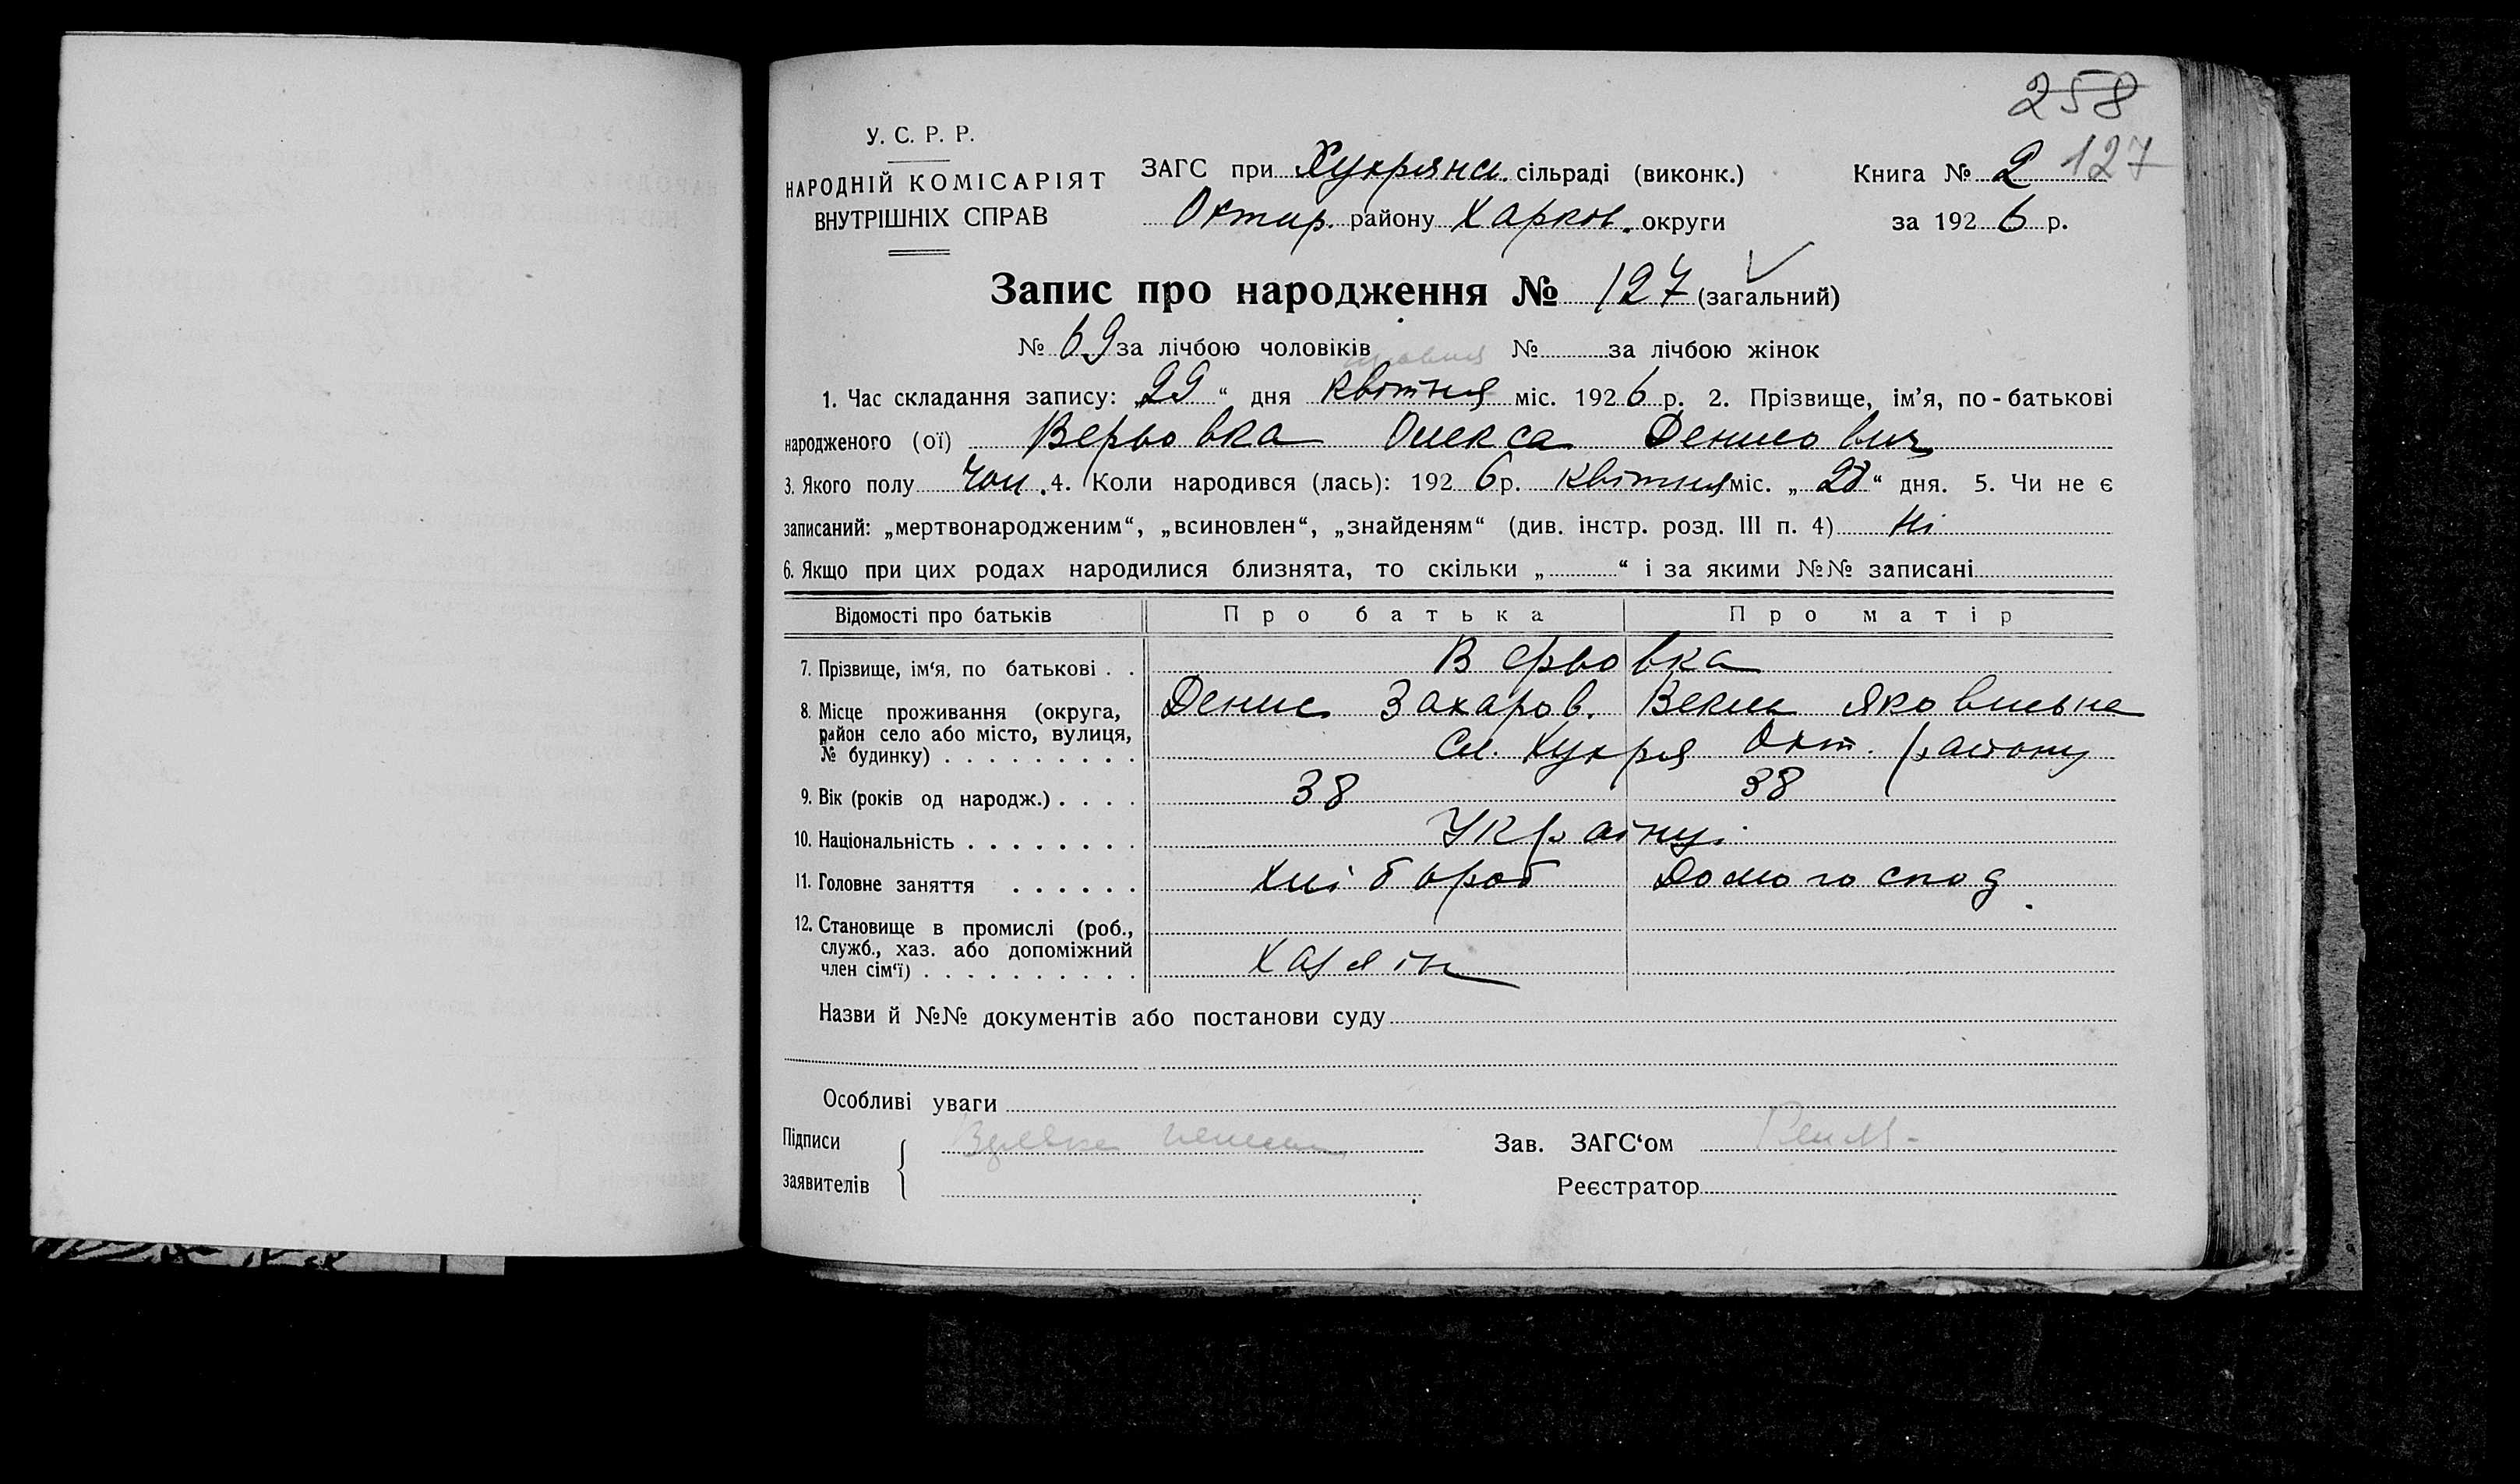 258
У. С. Р. Р.
НАРОДНІЙ КОМІСАРІЯТ
ВНУТРІШНІХ СПРАВ
ЗАГС при Хухрянс. сільраді (виконк.)
Охтир. району Харков. округи
Книга № 2 127
за 1926 р.
Запис про народження № 127 (загальний)
№ 69 за лічбою чоловіків № за лічбою жінок
1. Час складання запису: „29“ дня квітня міс. 1926 р. 2. Прізвище, ім’я, по-батькові
народженого (ої) Верьовка Олекса Денисович
3. Якого полу чол. 4. Коли народився (лась): 1926 р. квітня міс. „28“ дня. 5. Чи не є
записаний: „мертвонародженим“, „всиновлен“, „знайденям“ (див. інстр. розд. III п. 4) Ні
6. Якщо при цих родах народилися близнята, то скільки „ “ і за якими №№ записані
Відомості про батьків Про батька Про матір
7. Прізвище, ім‘я, по батькові . . Верьовка
8. Місце проживання (округа, Денис Захаров. Яковлевна
район село або місто, вулиця,
№ будинку) . . . . . . . . . Сл. Хухря Охт. району
9. Вік (років од народж.) . . . . 38 38
10. Національність . . . . . . . . Українці
11. Головне заняття . . . . . . Хлібороб Домогоспод.
12. Становище в промислі (роб.,
служб., хаз. або допоміжний
член сім‘ї) . . . . . . . . . . Хазяїн
Назви й №№ документів або постанови суду
Особливі уваги
Підписи
заявителів
Зав. ЗАГС‘ом
Реєстратор